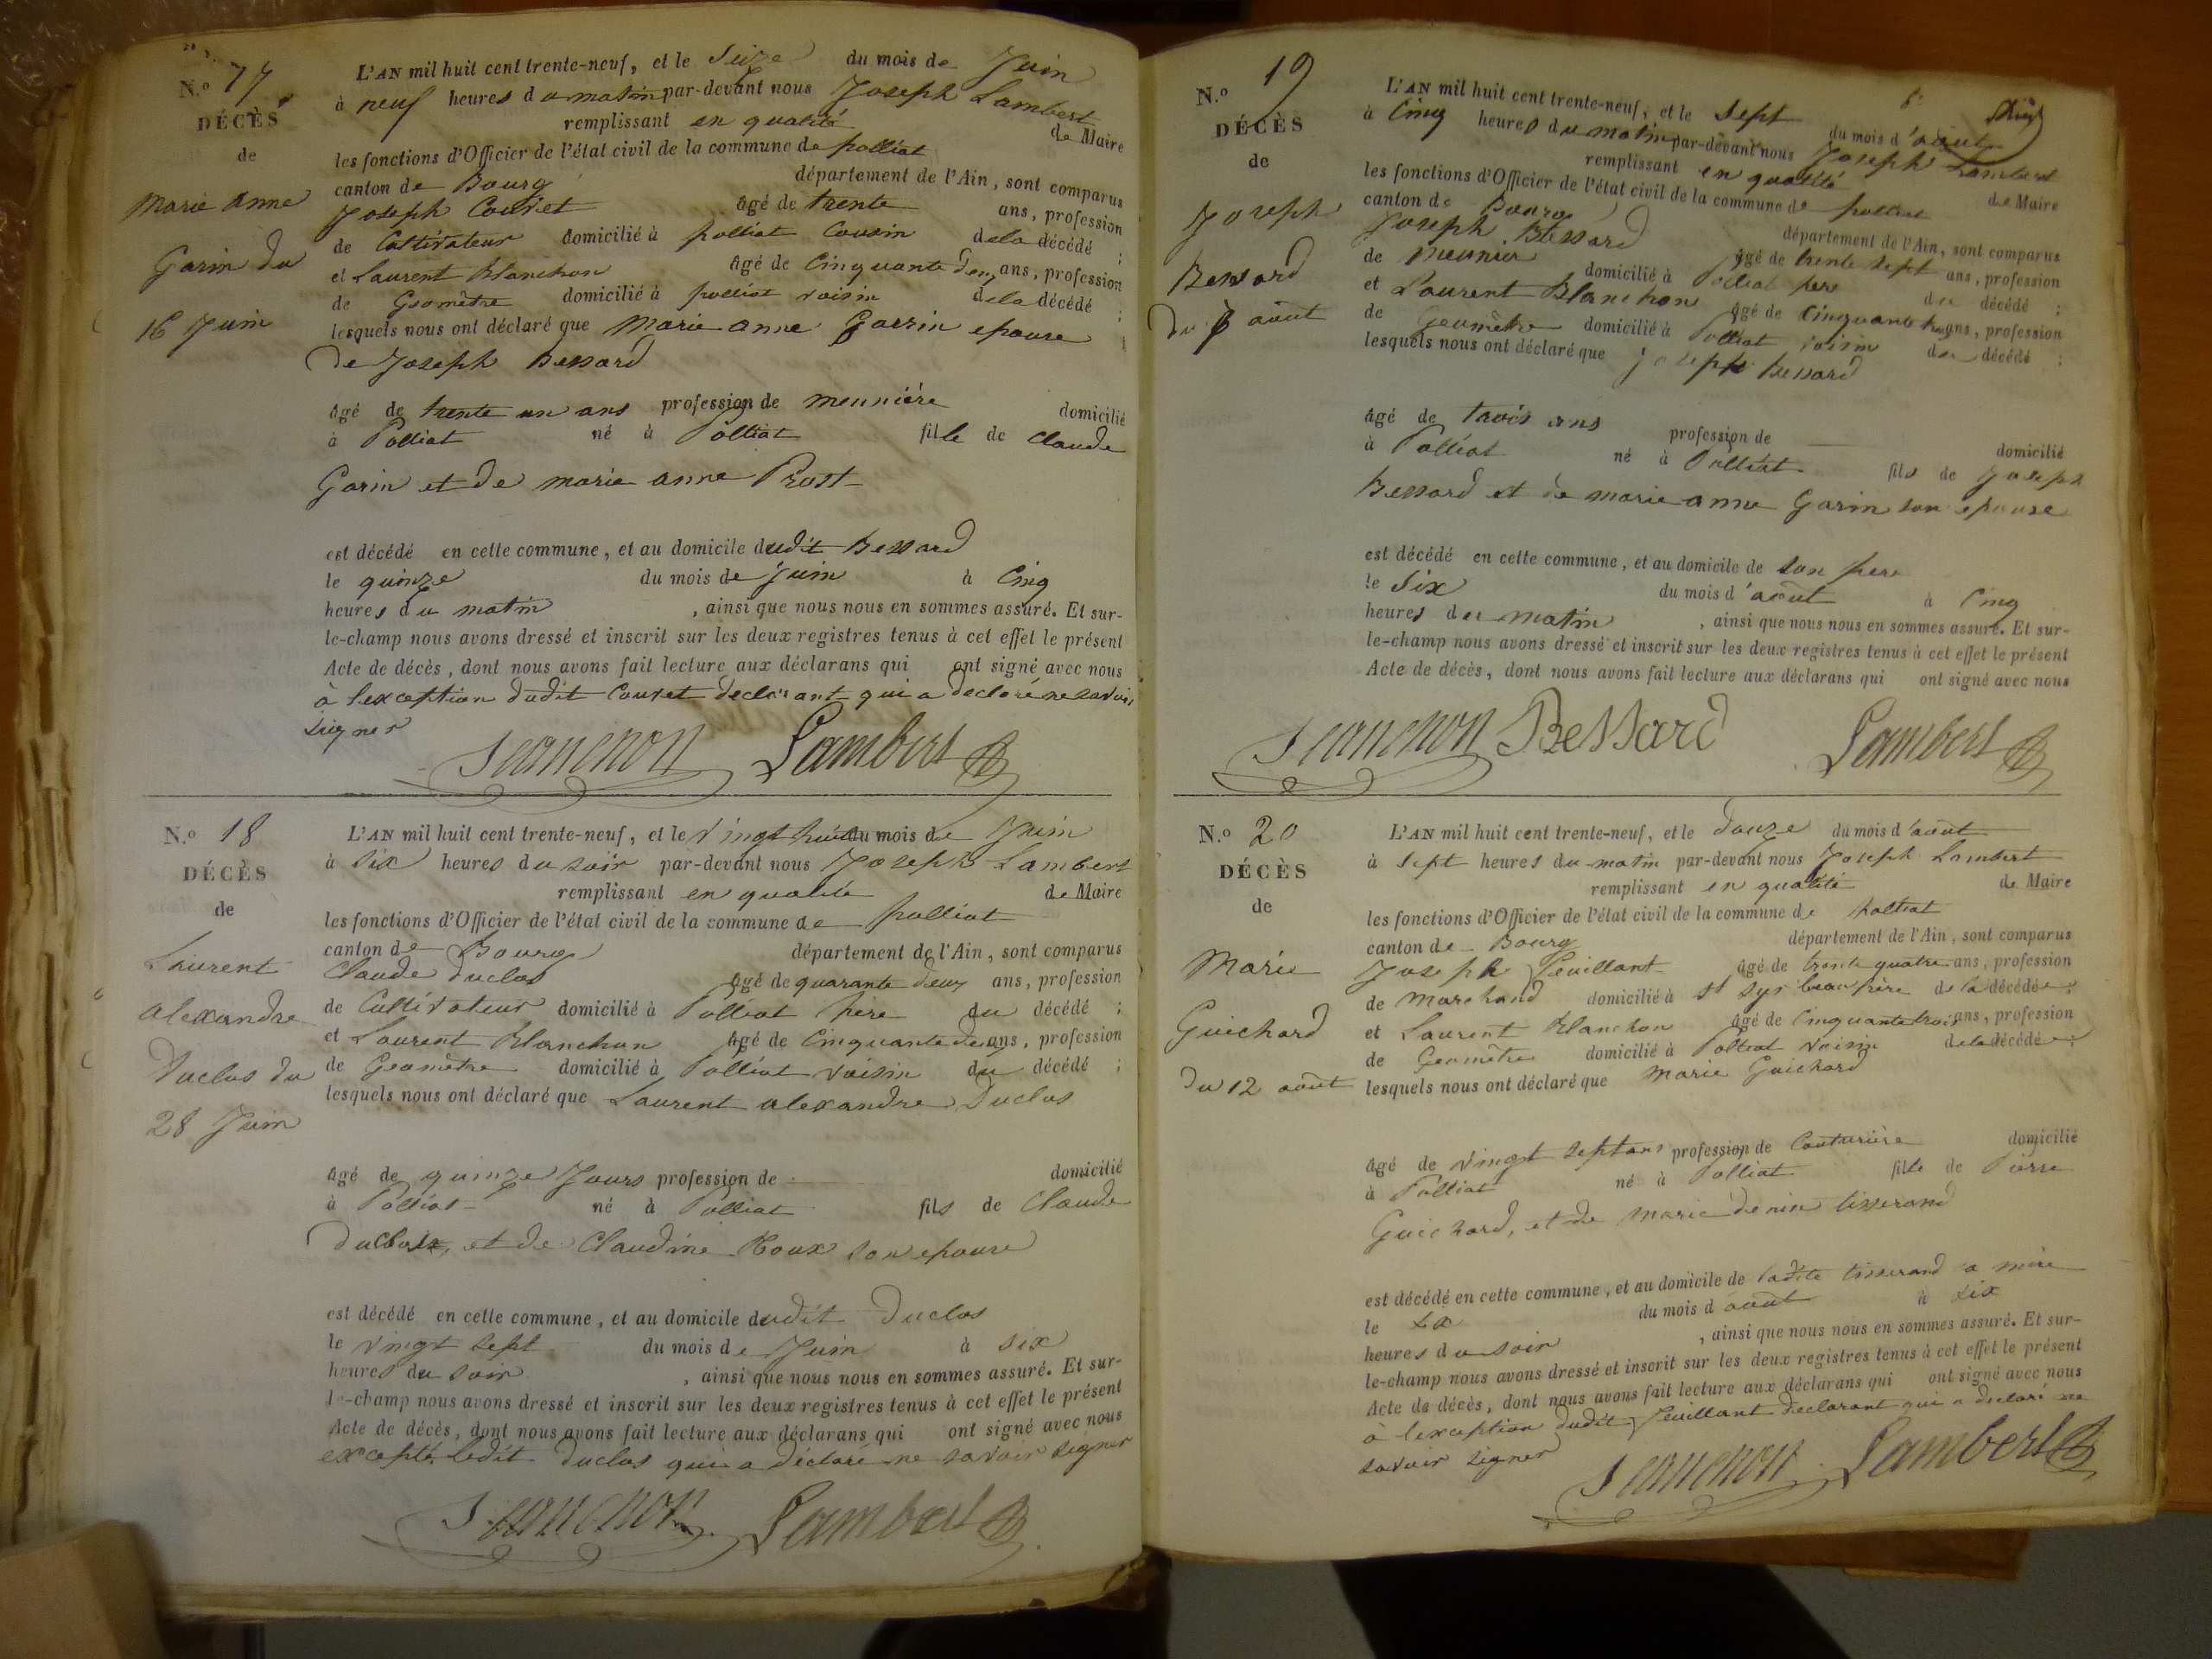 N.o 17
DÉCÈS
de
Marie anne
Garin du
16 Juin
L'AN mil huit cent trente-neuf, et le Seize du mois de Juin
à neuf heures du matin par-devant nous Joseph Lambert
remplissant en qualité de Maire
les fonctions d'Officier de l'état civil de la commune de polliat
canton de Bourg département de l'Ain, sont comparus
Joseph Couvet âgé de trente ans, profession
de Cultivateur domicilié à polliat Cousin dela décédé ;
et Laurent Blanchon âgé de Cinquante deux ans, profession
de Géomètre domicilié à polliat voisin dela décédé ;
lesquels nous ont déclaré que Marie anne Garrin epouse
de Joseph Bessard
âgé de trente un ans profession de meunière domicilié
à Polliat né à Polliat fille de Claude
Garin et de marie anne Prost
est décédé en cette commune, et au domicile dudit Bessard
le quinze du mois de Juin à Cinq
heures du matin , ainsi que nous nous en sommes assuré. Et sur-
le-champ nous avons dressé et inscrit sur les deux registres tenus à cet effet le présent
Acte de décès, dont nous avons fait lecture aux déclarans qui ont signé avec nous
à l'exception dudit Couvet declarant qui a declaré ne savoir
signer
Lambert
N.o 18
DÉCÈS
de
Laurent
alexandre
Duclos du
28 Juin
L'AN mil huit cent trente-neuf, et le vingt huit du mois de Juin
à six heures du soir par-devant nous Joseph Lambert
remplissant en qualité de Maire
les fonctions d'Officier de l'état civil de la commune de polliat
canton de Bourg département de l'Ain, sont comparus
Claude Duclos âgé de quarante deux ans, profession
de Cultivateur domicilié à Polliat père du décédé ;
et Laurent Blanchon âgé de Cinquante deux ans, profession
de Géomètre domicilié à Polliat voisin du décédé ;
lesquels nous ont déclaré que Laurent alexandre Duclos
âgé de quinze Jours profession de domicilié
à Polliat né à Polliat fils de Claude
Duclos, et de Claudine Roux son epouse
est décédé en cette commune, et au domicile dudit Duclos
le vingt sept du mois de Juin à six
heures du soir , ainsi que nous nous en sommes assuré. Et sur-
le-champ nous avons dressé et inscrit sur les deux registres tenus à cet effet le présent
Acte de décès, dont nous avons fait lecture aux déclarans qui ont signé avec nous
excepté ledit Duclos qui a déclaré ne savoir signer
Lambert
N.o 19
DÉCÈS
de
Joseph
Bessard
du 7 août
L'AN mil huit cent trente-neuf, et le sept du mois d'août
à Cinq heures du matin par-devant nous Joseph Lambert
remplissant en qualité de Maire
les fonctions d'Officier de l'état civil de la commune de polliat
canton de Bourg département de l'Ain, sont comparus
Joseph Bessard âgé de trente sept ans, profession
de meunier domicilié à Polliat père du décédé ;
et Laurent Blanchon âgé de Cinquante ans, profession
de Géomètre domicilié à Polliat voisin du décédé ;
lesquels nous ont déclaré que joseph Bessard
âgé de trois ans profession de domicilié
à Polliat né à Polliat fils de Joseph
Bessard et de marie anne Garin son epouse
est décédé en cette commune, et au domicile de son père
le Six du mois d'août à Cinq
heures du matin , ainsi que nous nous en sommes assuré. Et sur-
le-champ nous avons dressé et inscrit sur les deux registres tenus à cet effet le présent
Acte de décès, dont nous avons fait lecture aux déclarans qui ont signé avec nous
Bessard Lambert
N.o 20
DÉCÈS
de
Marie
Guichard
du 12 août
L'AN mil huit cent trente-neuf, et le douze du mois d'août
à sept heures du matin par-devant nous Joseph Lambert
remplissant en qualité de Maire
les fonctions d'Officier de l'état civil de la commune de polliat
canton de Bourg département de l'Ain, sont comparus
Joseph Peuillant âgé de trente quatre ans, profession
de Marchand domicilié à St Syr beau père de la décédée ;
et Laurent Blanchon âgé de Cinquante trois ans, profession
de Géomètre domicilié à Polliat voisin dela décédée ;
lesquels nous ont déclaré que Marie Guichard
âgé de vingt sept ans profession de Couturière domicilié
à Polliat né à Polliat fille de Pierre
Guichard, et de marie denise tisserand
est décédé en cette commune, et au domicile de ladite tisserand sa mère
le dix du mois d août à six
heures du soir , ainsi que nous nous en sommes assuré. Et sur-
le-champ nous avons dressé et inscrit sur les deux registres tenus à cet effet le présent
Acte de décès, dont nous avons fait lecture aux déclarans qui ont signé avec nous
à l'exception dudit Peuillant declarant qui a declaré ne
savoir signer
Lambert